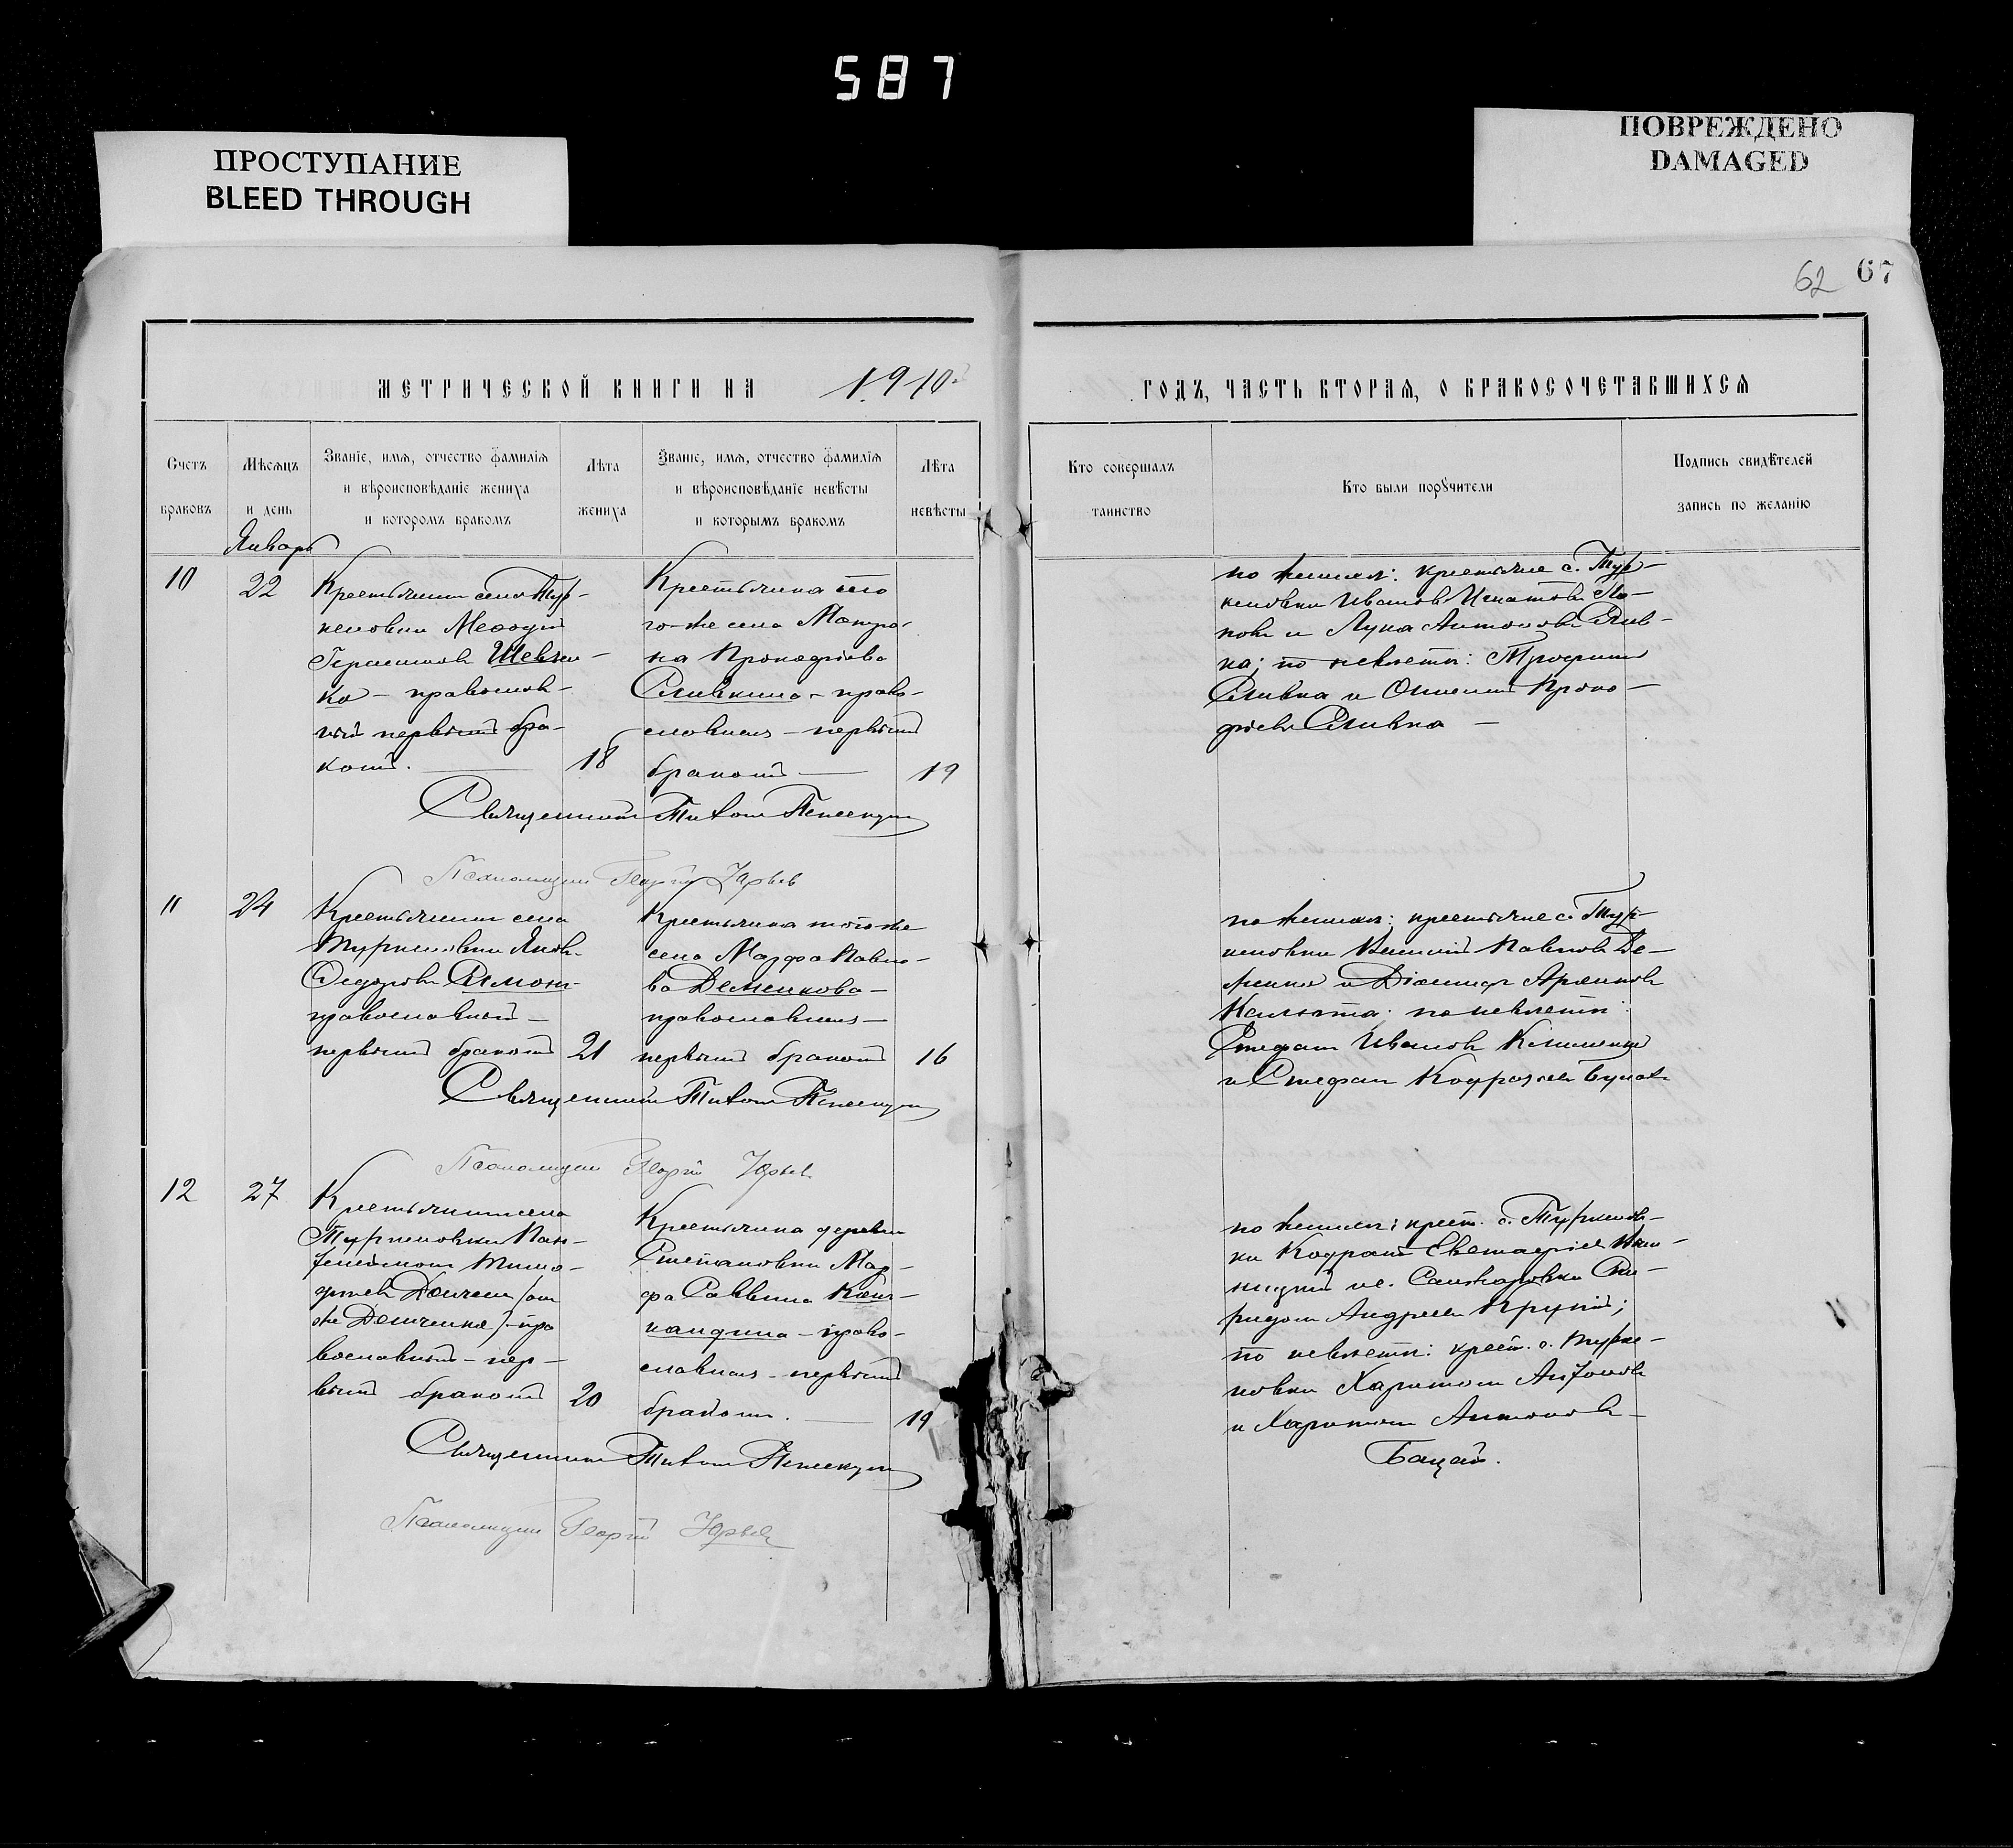 587
ПРОСТУПАНИЕ
BLEED THROUGH
ПОВРЕЖДЕНО
DAMAGED
62 67
МЕТРИЧЕСКОЙ КНИГИ НА 1910
ГОДЪ, ЧАСТЬ ВТОРАЯ, О БРАКОСОЧЕТАВШИХСЯ
Счетъ браковъ
Мѣсяцъ и день
Званіе, имя, отчество фамилія
и вѣроисповѣданіе жениха
и которомъ бракомъ
Лѣта жениха
Званіе, имя, отчество фамилія
и вѣроисповѣданіе невѣсты
и которымъ бракомъ
Лѣта невѣсты
Кто совершалъ
таинство
Кто были порꙋчители
Подпись свидѣтелей
запись по желанію
Январь
10
22
Крестьянинъ села Тур-
кеновки Меѳодій
Герасимовъ Шевчен-
ко - православ-
ный первымъ бра-
комъ.
18
Крестьянка сего
го-же села Матро-
на Прокофіева
Сливкина - право-
славная - первымъ
бракомъ
19
по женихѣ: крестьяне с. Тур-
кеновки Иванъ Игнатовъ По-
повъ и Лука Антоновъ Слив-
ка; по невѣстѣ: Трофимъ
Сливка и Проко-
фіевъ Сливка
Священникъ Титъ
Псаломщикъ Георгій Юрьев
11
24
Крестьянинъ села
Туркеновки Яковъ
Федоровъ
православный
первымъ бракомъ
21
Крестьянка того-же
села Марфа Павло-
ва Деменкова
православная
первымъ бракомъ
16
по женихѣ: крестьяне с. Тур-
кеновки Василій Павловъ Де-
и
по невѣстѣ:
Стефанъ Ивановъ
и Стефанъ
Священникъ Титъ
Псаломщикъ Георгій Юрьев
12
27
Крестьянинъ села
Туркеновки Пан-
телеймонъ Тимо-
феевъ (он
же Демченко) - пра
вославный - пер-
вымъ бракомъ
20
Крестьянка деревни
Степановки Мар-
фа Саввина
- право-
славная - первымъ
бракомъ.
19
по женихѣ: крест. с. Туркенов-
ки Кодратъ Евстафіевъ
и с. Санжаровки Спи-
ридонъ Андреевъ Крупій;
по невѣстѣ: крест. с. Турке-
новки Харитонъ Антоновъ
и Харитонъ Антоновъ
Бацай.
Священникъ Титъ
Псаломщикъ Георгій Юрьев